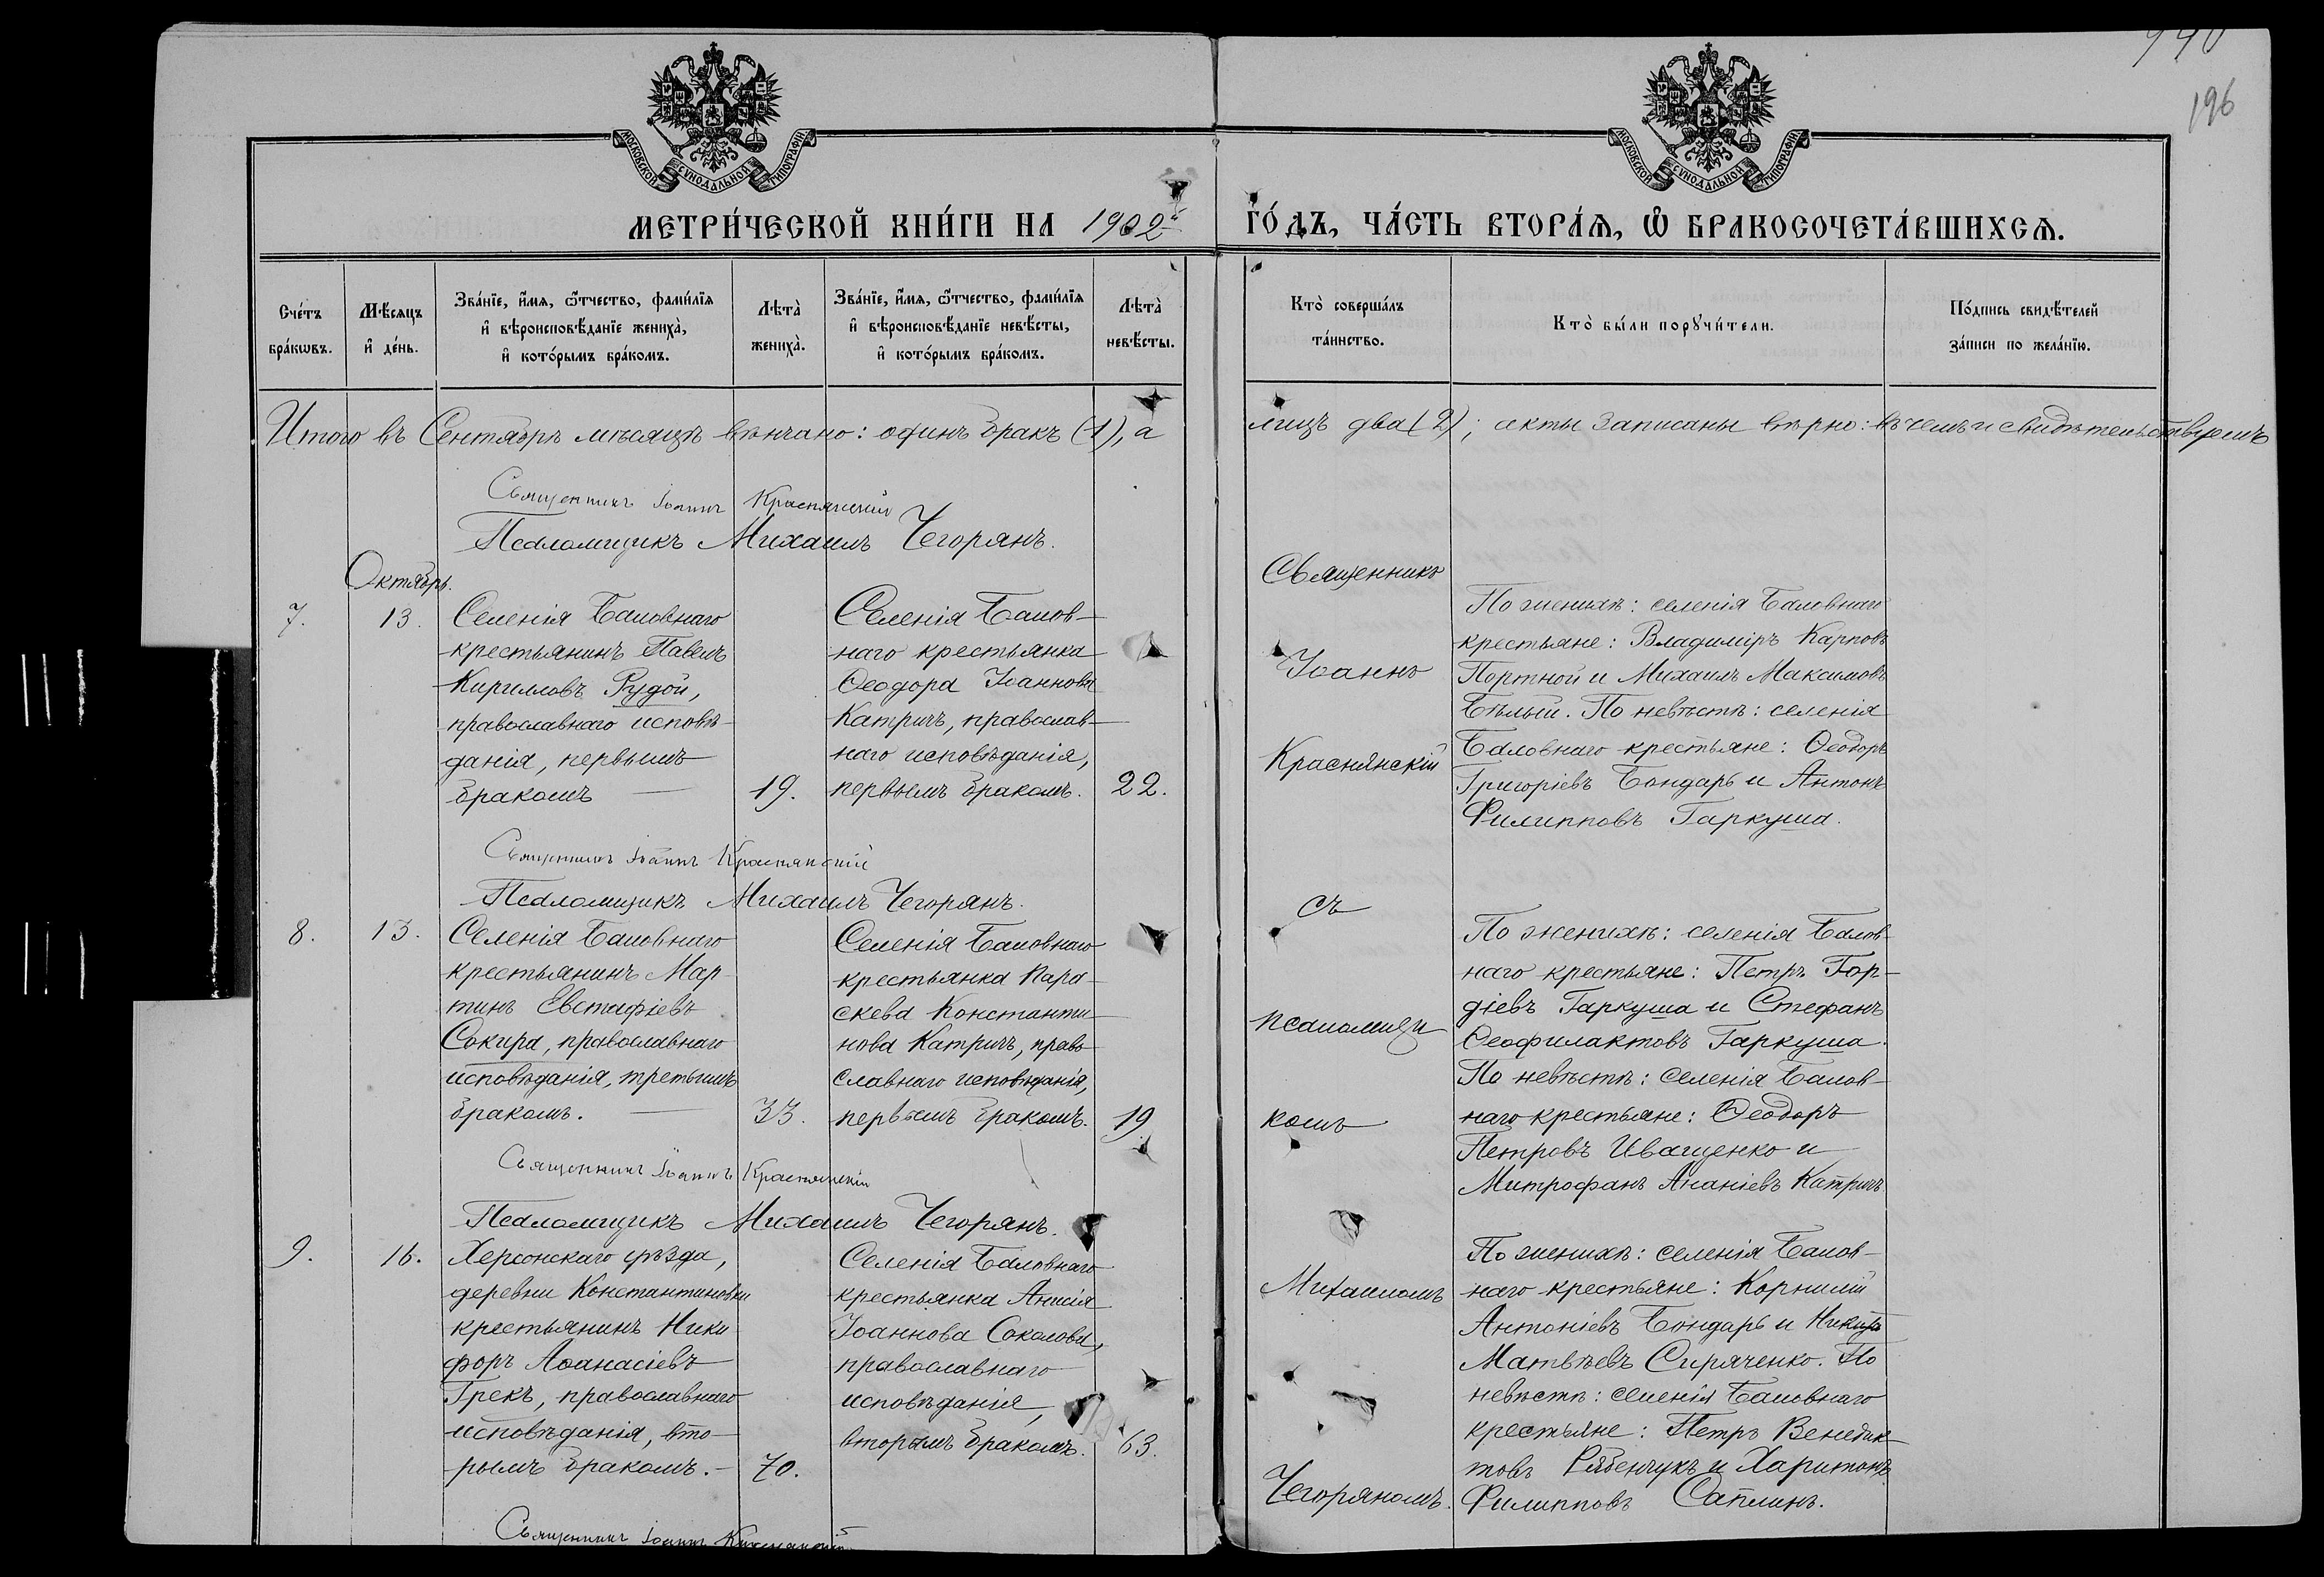 196
МОСКОВСКОЙ СѴНОДАЛЬНОЙ ТИПОГРАФІИ
МОСКОВСКОЙ СѴНОДАЛЬНОЙ ТИПОГРАФІИ
МЕТРИ́ЧЕСКОЙ КНИ́ГИ НА 1902 ГО́ДЪ, ЧА́СТЬ ВТОРА́Ѧ, Ѿ БРАКОСОЧЕТА́ВШИХСѦ.
Сче́тъ
бра́кѡвъ.
Мѣ́сяцъ
и҆ де́нь.
Зва́нїе, и҆́мя, ѻ҆́тчество, фами́лїя
и҆ вѣроисповѣ́данїе жениха̀,
и҆ кото́рымъ бра́комъ.
Лѣта̀
жениха̀.
Зва́нїе, и҆́мя, ѻ҆́тчество, фами́лїя
и҆ вѣроисповѣ́данїе невѣ́сты,
и҆ кото́рымъ бра́комъ.
Лѣта̀
невѣ́сты.
Кто̀ соверша́лъ
та́инство.
Кто̀ бы́ли порꙋчи́тели.
По́дпись свидѣ́телей
за́писи по жела́нїю.
Итого въ Сентябрѣ мѣсяцѣ вѣнчано: одинъ бракъ (1), а лицъ два (2); акты записаны вѣрно: въ чемъ и свидѣтельствуемъ
Священникъ Іоаннъ Краснянскій
Псаломщикъ Михаилъ Чегорянъ.
Октябрь.
7.
13.
Селенія Баловнаго
крестьянинъ Павелъ
Кирилловъ Рудой,
православнаго исповѣ-
данія, первымъ
бракомъ —
19.
Селенія Балов-
наго крестьянка
Ѳеодора Іоаннова
Катричъ, православ-
наго исповѣданія,
первымъ бракомъ.
22.
Священникъ
Іоаннъ
Краснянскій
По женихѣ: селенія Баловнаго
крестьяне: Владиміръ Карповъ
Портной и Михаилъ Максимовъ
Бѣлый. По невѣстѣ: селенія
Баловнаго крестьяне: Ѳеодоръ
Григоріевъ Бондарь и Антонъ
Филипповъ Гаркуша.
Священникъ Іоаннъ Краснянскій
Псаломщикъ Михаилъ Чегорянъ.
8.
13.
Селенія Баловнаго
крестьянинъ Мар-
тинъ Евстафіевъ
Сокура, православнаго
исповѣданія, третьимъ
бракомъ. —
33.
Селенія Баловнаго
крестьянка Пара-
скева Константи-
нова Катричъ, право-
славнаго исповѣданія,
первымъ бракомъ.
19
съ
псаломщи
комъ
По женихѣ: селенія Балов-
наго крестьяне: Петръ Гор-
діевъ Гаркуша и Стефанъ
Ѳеофилактовъ Гаркуша.
По невѣстѣ: селенія Балов-
наго крестьяне: Ѳеодоръ
Петровъ Иващенко и
Митрофанъ Ананіевъ Катричъ
Священникъ Іоаннъ Краснянскій
Псаломщикъ Михаилъ Чегорянъ.
9.
16.
Херсонскаго уѣзда,
деревни Константиновки
крестьянинъ Ники-
форъ Аѳанасіевъ
Грекъ, православнаго
исповѣданія, вто-
рымъ бракомъ. —
70.
Селенія Баловнаго
крестьянка Анисія
Іоаннова Соколова,
православнаго
исповѣданія,
вторымъ бракомъ.
63.
Михаиломъ
Чегоряномъ.
По женихѣ: селенія Балов-
наго крестьяне: Корнилій
Антоніевъ Бондарь и Никита
Матвѣевъ Сиряченко. По
невѣстѣ: селенія Баловнаго
крестьяне: Петръ Венедик-
товъ Рябенчукъ и Харитонъ
Филипповъ Саплинъ.
Священникъ Іоаннъ Краснянскій